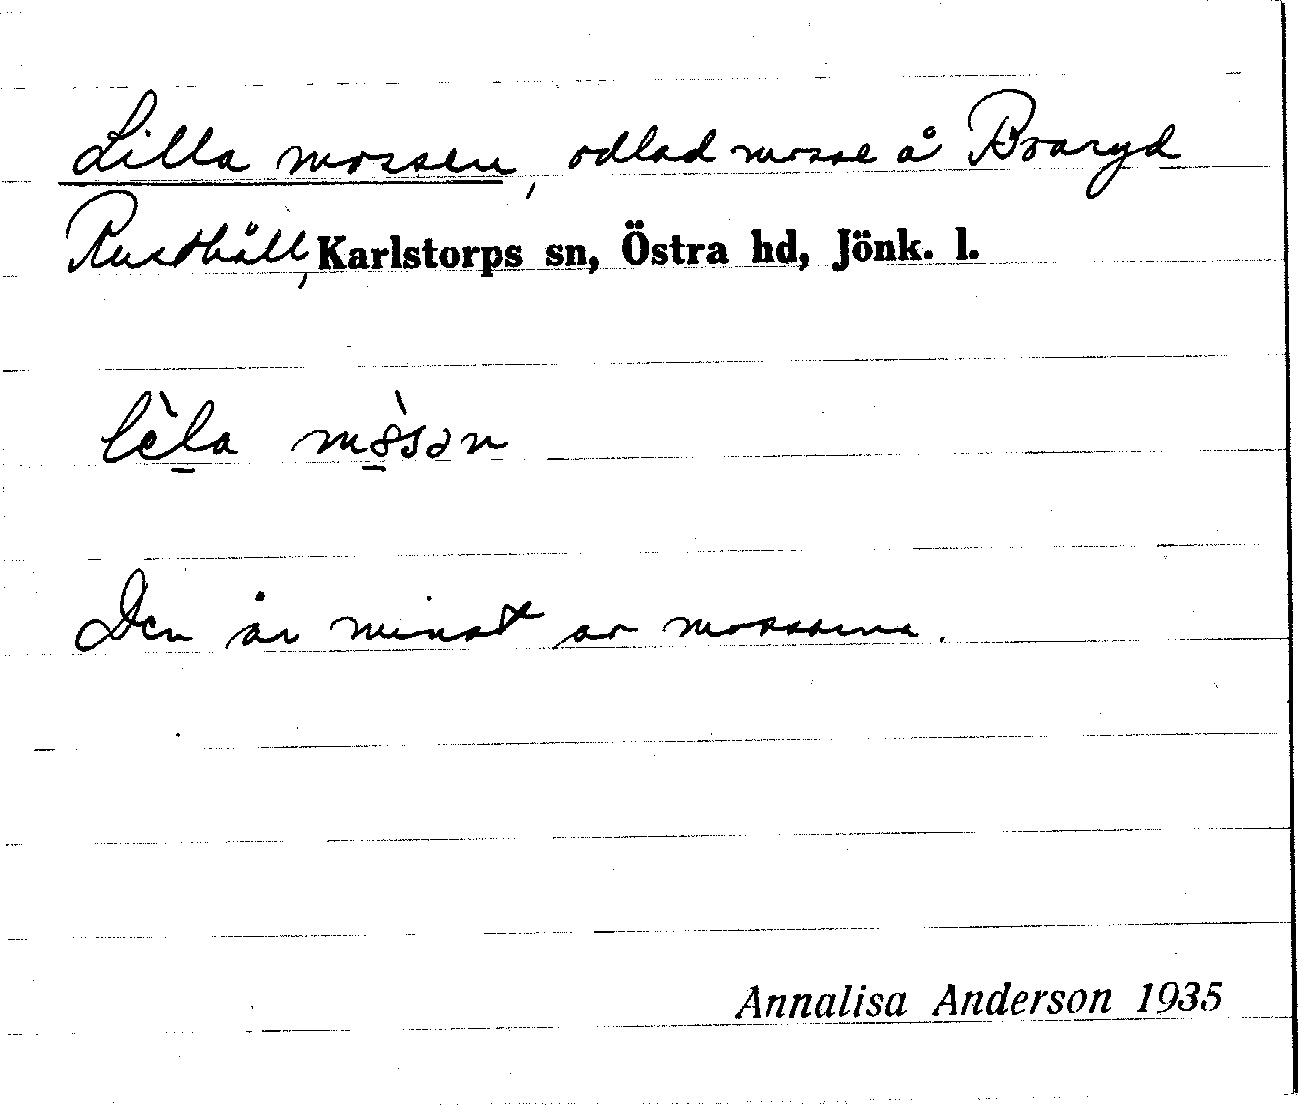 Lilla mossen, odlad mosse å Boaryd
Rusthåll, Karlstorps sn, Östra hd, Jönk. l.
lèla mòsən
Den är minst av mossarna.
Annalisa Anderson 1935